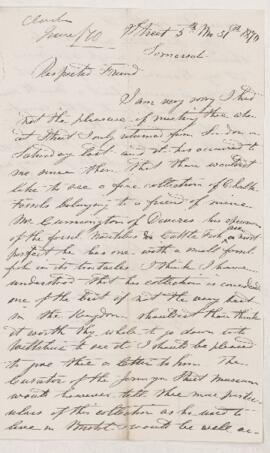 Clark
June/70
Street 5th Mo 31st 1870
Somerset
Respected Friend
I am very sorry I had
not the pleasure of meeting thee when
at Street I only returned from London on
Saturday last and it has occurred to
me since then that thou wouldst
like to see a fine collection of Chalk
fossils belonging to a friend of mine
Mr Cunnington of Devizes his specimens
of the fossil Nautilus & Cuttle Fish are most
perfect he has one with a small fossil
fish in its tentacles I think I have
understood that his collection is considered
one of the best if not the very best
in the Kingdom shouldst thou think
it worth thy while to go down into
Wiltshire to see it I should be pleased
to give thee a letter to him. The
Curator of the Jermyn Street museum
would however tell thee more particu-
ulars of this collection as he used to
live in Bristol & would be well ac-